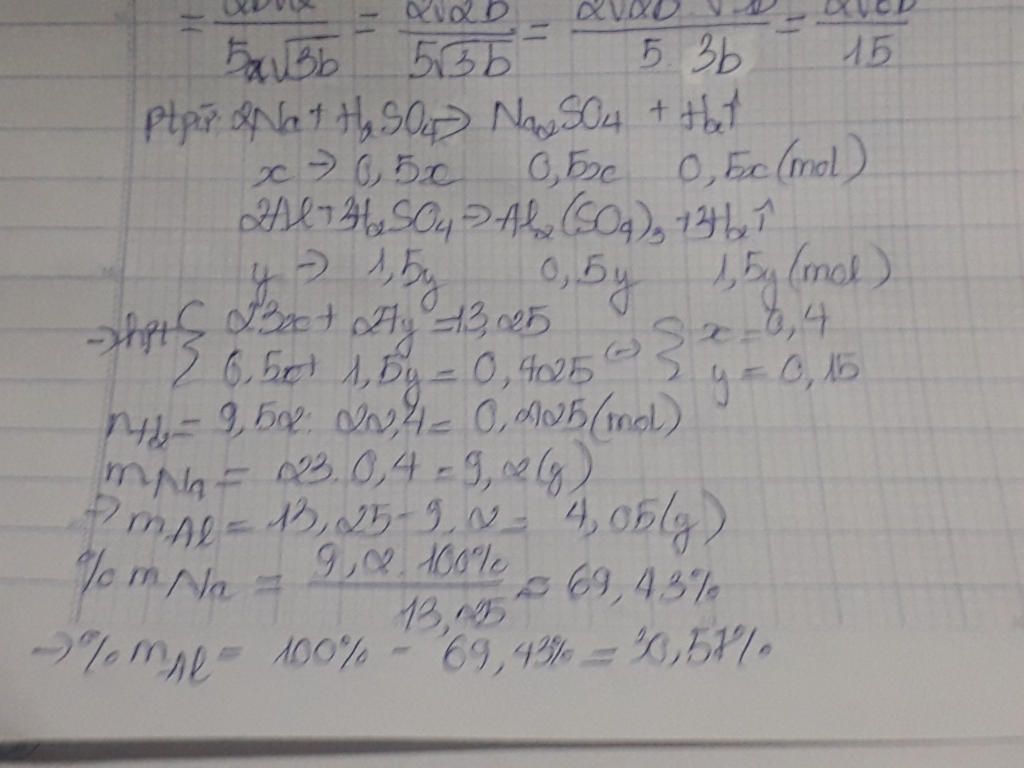 = = 2√2b / 5√3b = / 5 3b = / 15
ptpư: 2Na + H2SO4 → Na2SO4 + H2↑
x → 0,5x 0,5x 0,5x (mol)
2Al + 3H2SO4 → Al2(SO4)3 + 3H2↑
y → 1,5y 0,5y 1,5y (mol)
→ hpt { 23x + 27y = 13,25
0,5x + 1,5y = 0,425 ⇔ { x = 0,4
y = 0,15
nH2 = 9,52 : 22,4 = 0,425 (mol)
mNa = 23.0,4 = 9,2 (g)
→ mAl = 13,25 - 9,2 = 4,05 (g)
%mNa = 9,2.100% / 13,25 = 69,43%
→ %mAl = 100% - 69,43% = 30,57%